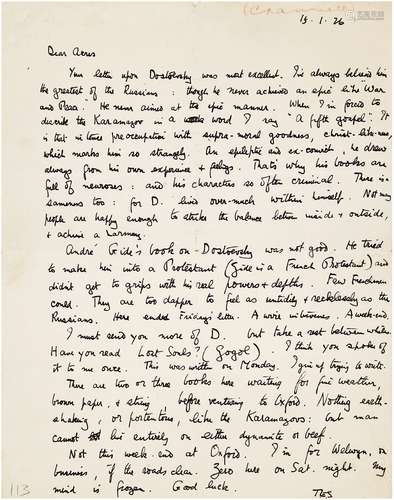 (Cranwell)
15.1.26
Dear Acres
Your letter upon Dostoevsky was most excellent. I've always believed him
the greatest of the Russians: though he never achieved an epic like "War
and Peace". He never aimed at the epic manner. When I'm forced to
describe the Karamazov in a word I say "A fifth gospel". It
is that intense preoccupation with supra-moral goodness, christ-like-ness,
which marks him so strangely. An epileptic and ex-convict, he drew
always from his own experience & feelings. That's why his books are
full of neuroses: and his characters so often criminal. There is a
sameness too: for D. lived over-much within himself. Not many
people are happy enough to strike the balance between inside & outside,
& achieve a harmony.
André Gide's book on Dostoevsky was not good. He tried
to make him into a Protestant (Gide is a French Protestant) and
didn't get to grips with his real powers & depths. Few Frenchmen
could. They are too dapper to feel as untidily & recklessly as the
Russians. Here ended Friday's letter. A wire intervenes. A week-end.
I must send you more of D. but take a rest between whiles.
Have you read Lost Souls? (Gogol) I think you spoke of
it to me once. This was written on Monday. I give up trying to write.
There are two or three books here waiting for fine weather,
brown paper, & string before venturing to Oxford. Nothing earth-
shaking, or portentous, like the Karamazovs: but man
cannot live entirely on either dynamite or beef.
Not this week-end at Oxford. I'm for Welwyn, on
business, if the roads clear. Zero here on Sat. night. My
mind is frozen. Good luck.
TES
113